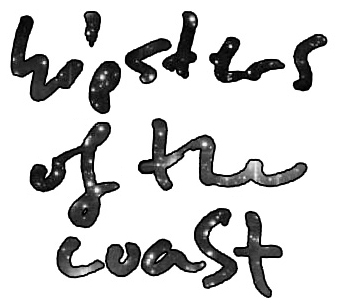 hipsters
of the
coast